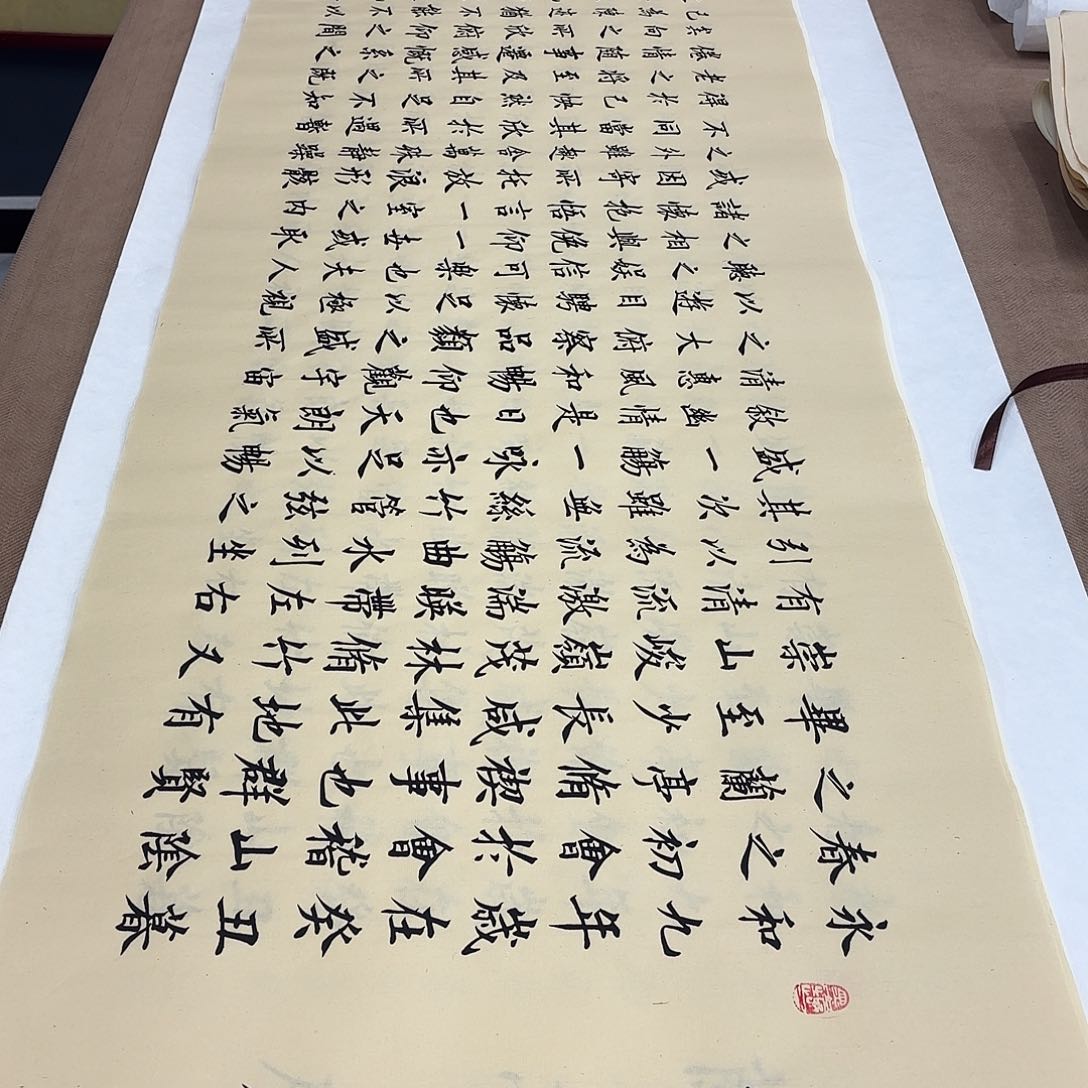 永和九年歲在癸丑暮
春之初會於會稽山陰
之蘭亭脩禊事也群賢
畢至少長咸集此地有
崇山峻嶺茂林脩竹又
有清流激湍映帶左右
引以為流觴曲水列坐
其次雖無絲竹管弦之
盛一觴一咏亦足以暢
敘幽情是日也天朗氣
清惠風和暢仰觀宇宙
之大俯察品類之盛所
以遊目騁懷足以極視
聽之娛信可樂也夫人
之相與俛仰一世或取
諸懷抱悟言一室之內
或因寄所托放浪形骸
之外雖趣舍萬殊靜躁
不同當其欣於所遇暫
得於己快然自足不知
老之將至及其所之既
倦情隨事遷感慨系之
矣向之所欣俯仰之間
已為不以